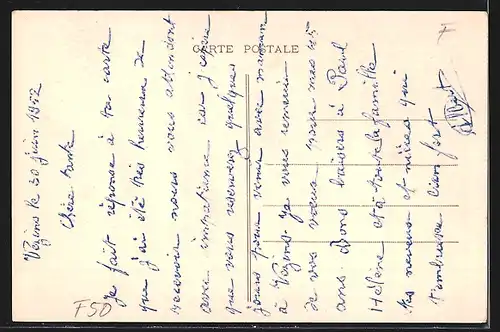 CARTE POSTALE
Vezins le 30 juin 1952
Chère tante
Je fait réponse à ta carte
que j'ai été très heureuse de
recevoir nous vous attendont
avec impatience car j'espère
que vous viendrez quelques
jours pour venir avec maman
à Vezins. Je vous remercie
de vos voeux pour mes 15
ans. Bons baisers à Paul
Hélène et à toute la famille
tes neveux et nièces qui
t'embrasse bien fort
F50